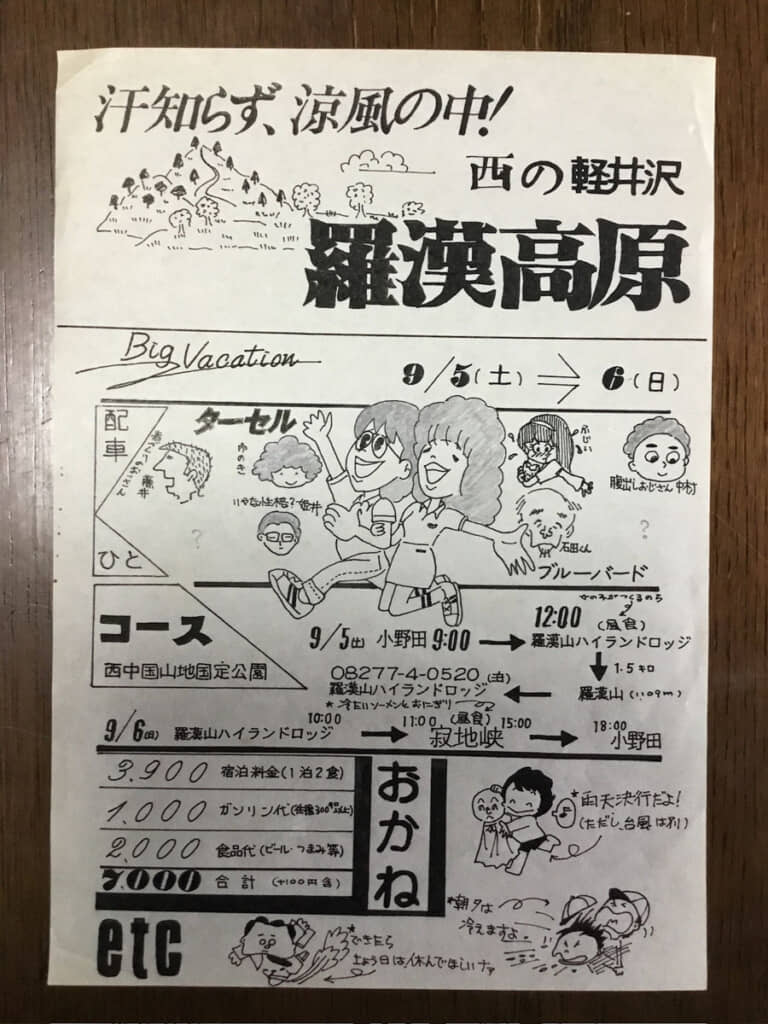 汗知らず、涼風の中!
西の軽井沢
羅漢高原
Big Vacation
9/5(土) ⇒ 6(日)
配車
ひと
ターセル
藤井
ゆのき
いやな性格?姫井
?
ふじい
腹出しおじさん 中村
石田くん
?
ブルーバード
コース
西中国山地国定公園
9/5(土) 小野田 9:00 → 12:00 (昼食) 羅漢山ハイランドロッジ
女の子がつくるのち
↓ 1.5キロ
羅漢山 (1109m)
←
08277-4-0520 (泊)
羅漢山ハイランドロッジ
*冷たいソーメンとおにぎり
9/6(日) 羅漢山ハイランドロッジ 10:00 → 11:00 (昼食) 15:00 寂地峡 → 18:00 小野田
おかね
3.900 宿泊料金(1泊2食)
1.000 ガソリン代
2.000 食品代(ビール・つまみ等)
7.000 合計 (+100円含)
*雨天決行だよ!
(ただし、台風は別)
etc
*できたら
土よう日は休んでほしいナァ
*朝夕は
冷えますよ。